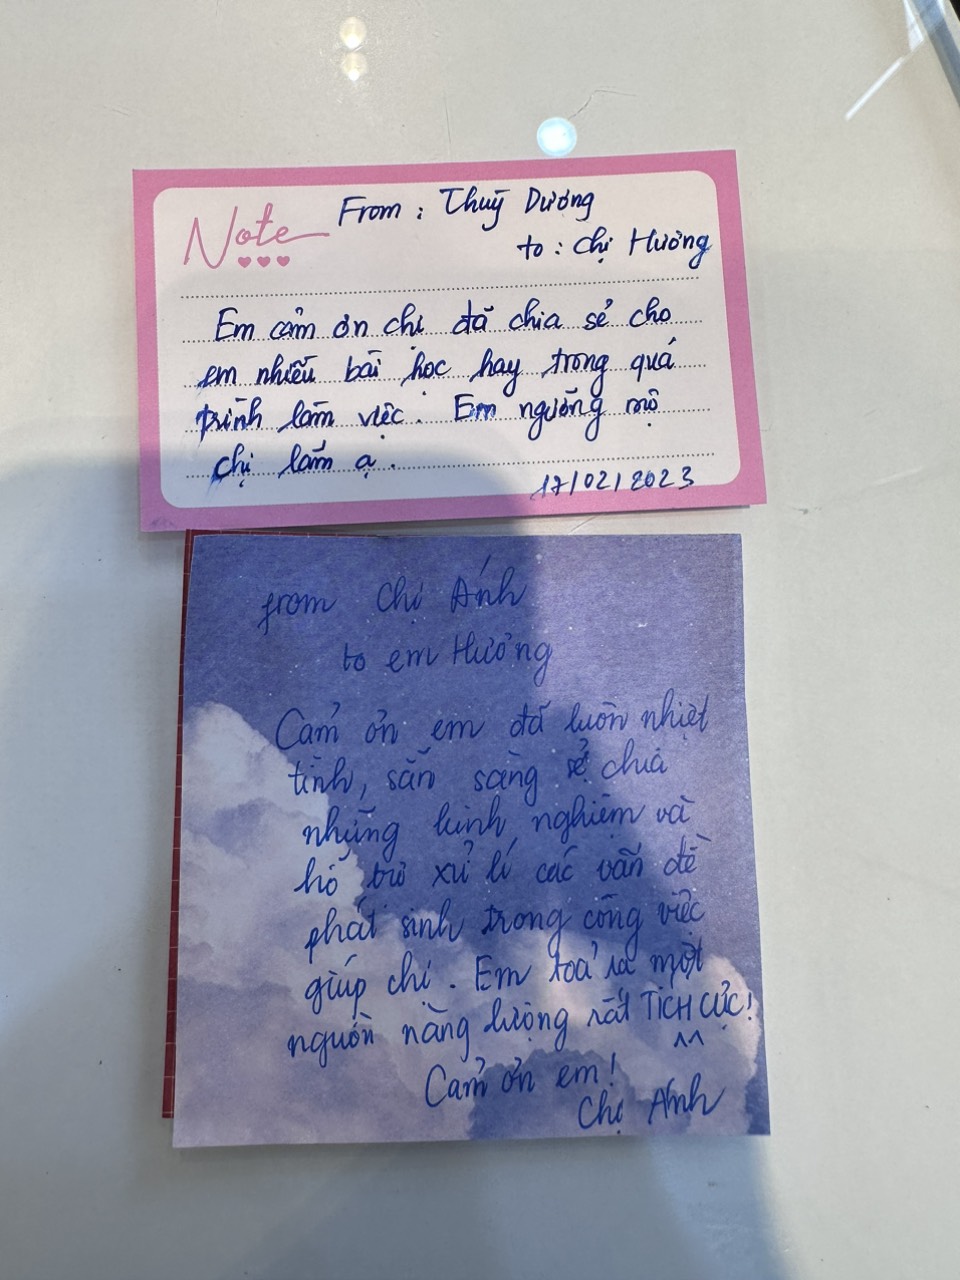 Note
From : Thuỳ Dương
to : Chị Hương
Em cảm ơn chị đã chia sẻ cho
em nhiều bài học hay trong quá
trình làm việc. Em ngưỡng mộ
chị lắm ạ.
17/02/2023
from Chị Ánh
to em Hương
Cảm ơn em đã luôn nhiệt
tình, sẵn sàng sẻ chia
những kinh nghiệm và
hỗ trợ xử lí các vấn đề
phát sinh trong công việc
giúp chị. Em toả ra một
nguồn năng lượng rất TÍCH CỰC!
^^
Cảm ơn em!
Chị Ánh